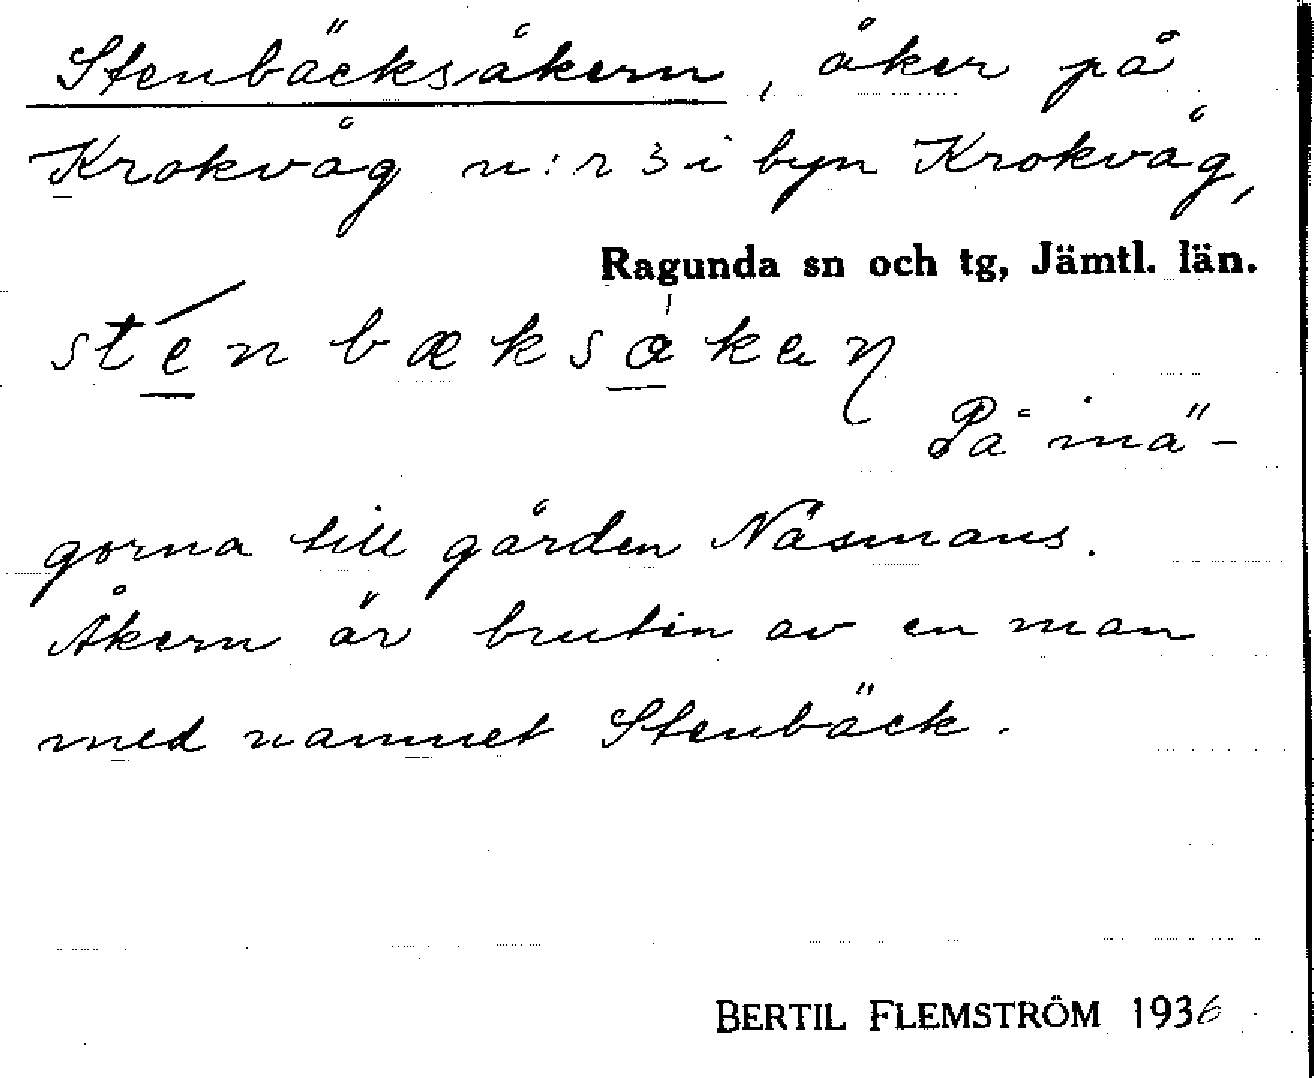 Stenbäcksåkern, åker på
Krokvåg n:r 3 i byn Krokvåg,
Ragunda sn och tg, Jämtl. län.
sténbæksåkaɳ
På inä-
gorna till gården Näsmans.
Åkern är bruten av en man
med namnet Stenbäck.
BERTIL FLEMSTRÖM 1936